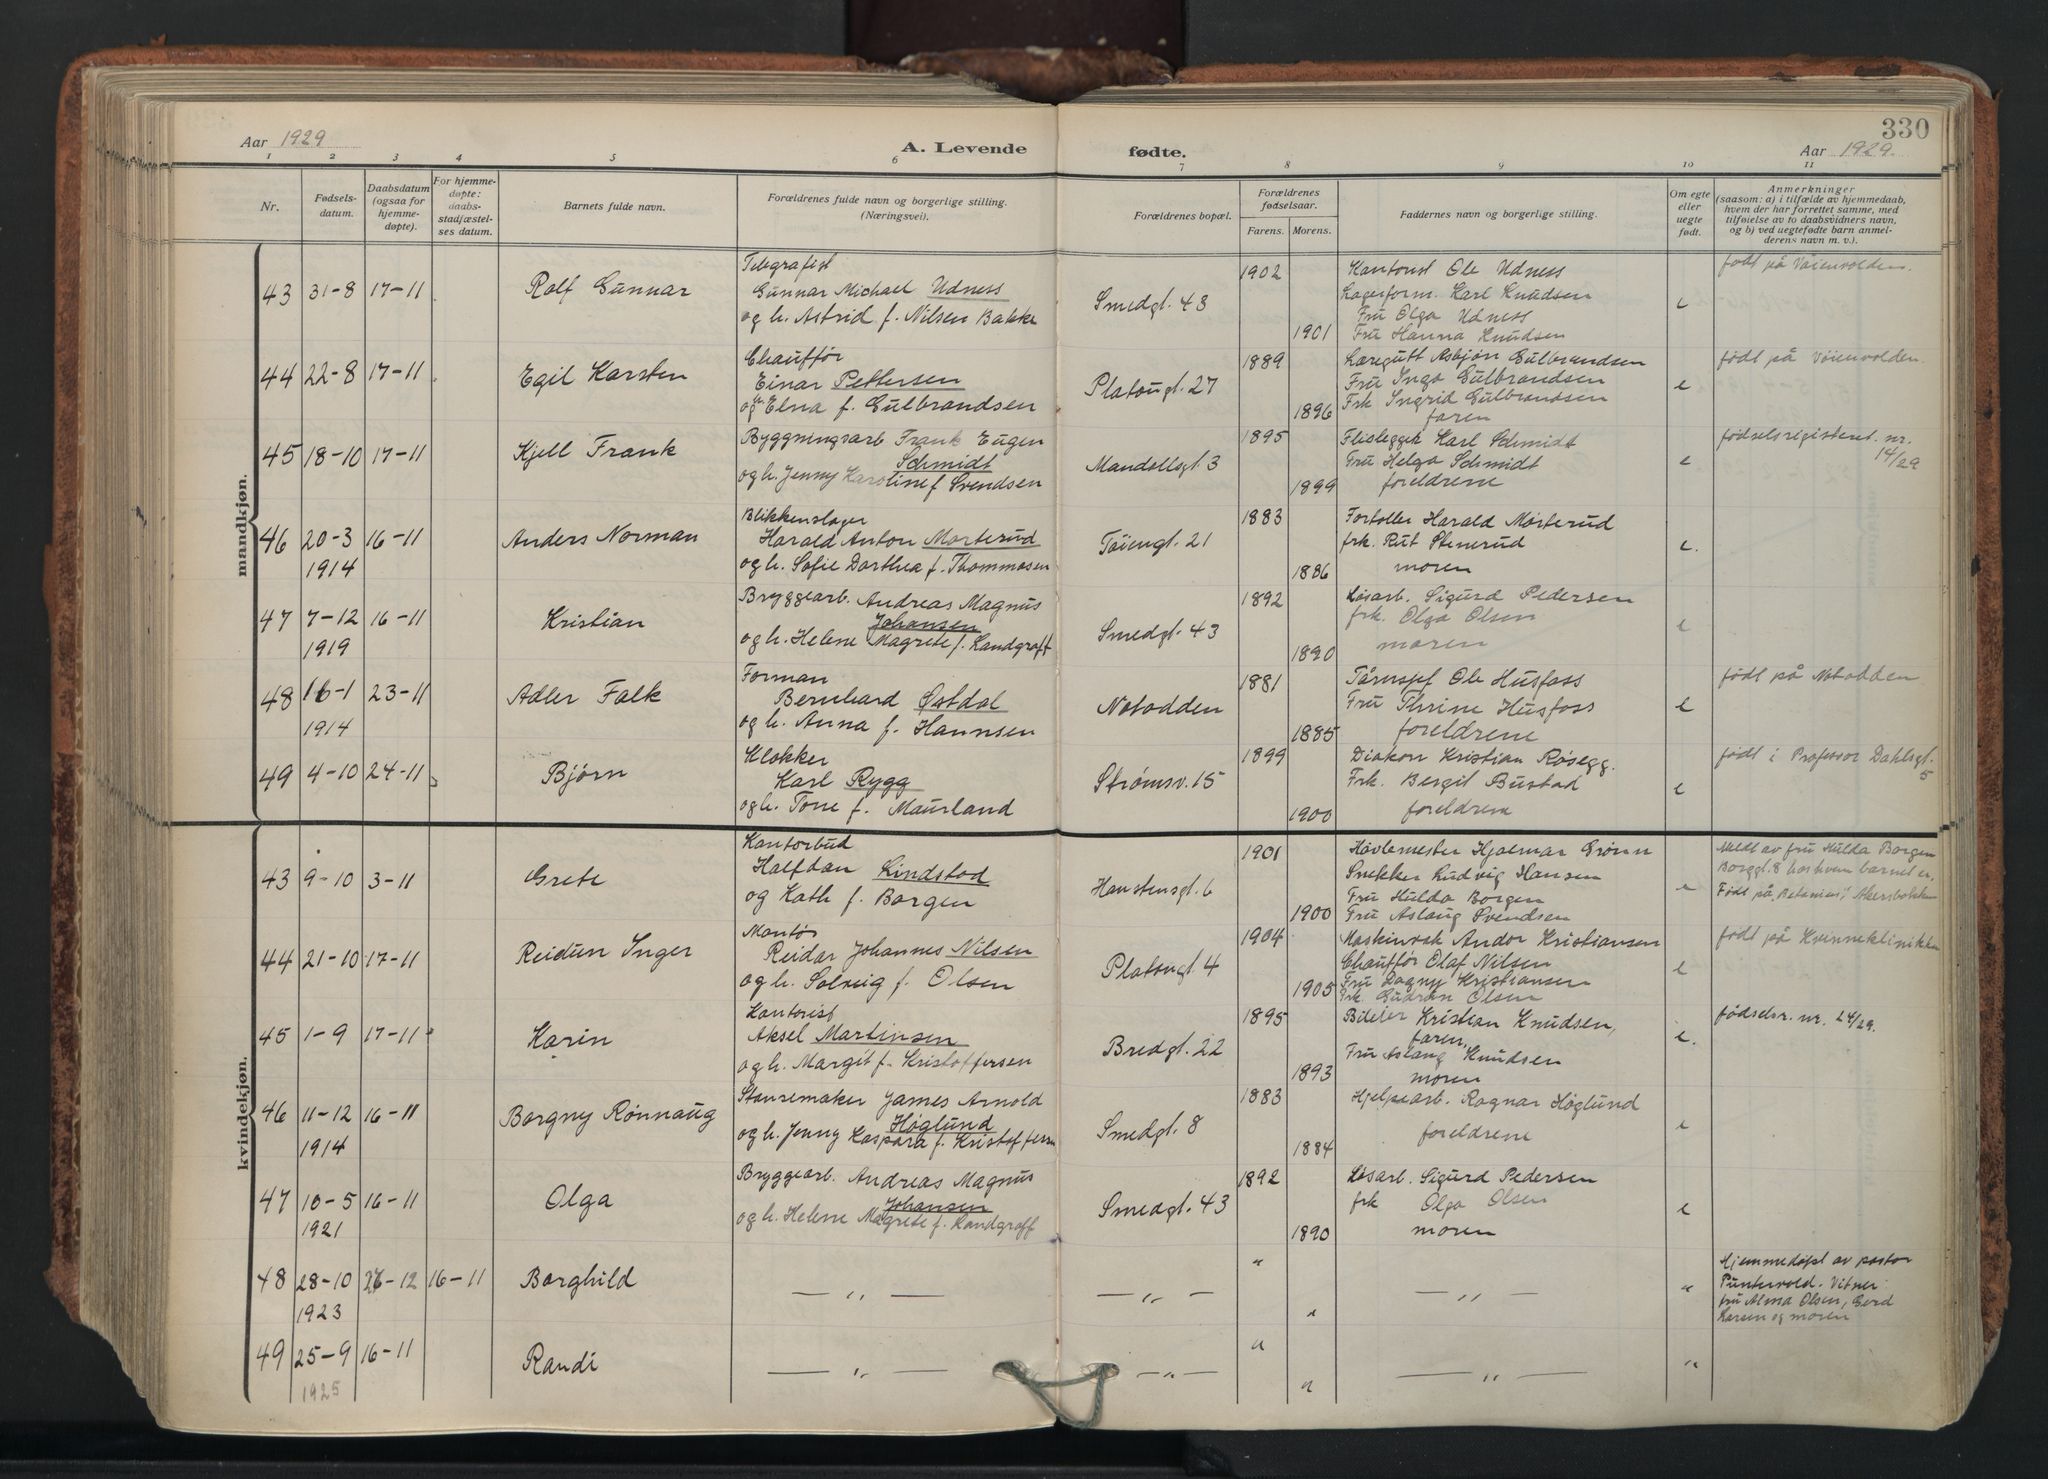 330
Aar 1929
A. Levende fødte.
Aar 1929.
1 2 3 4 5 6 7 8 9 10 11
Nr.
Fødsels-
datum.
Daabsdatum
(ogsaa for
hjemme-
døpte).
For hjemme-
døpte:
daabs-
stadfæstel-
ses datum.
Barnets fulde navn.
Forældrenes fulde navn og borgerlige stilling.
(Næringsvei).
Forældrenes bopæl.
Forældrenes
fødselsaar.
Farens. Morens.
Faddernes navn og borgerlige stilling.
Om egte
eller
uegte
født.
Anmerkninger
(saasom: a) i tilfælde av hjemmedaab,
hvem der har forrettet samme, med
tilføielse av to daabsvidners navn,
og b) ved uegtefødte barn anmel-
derens navn m. v.).
mandkjøn.
43 31-8 17-11
Rolf Gunnar
Telegrafist
Gunnar Michael Udness
og h. Astrid f. Nilsen Bakke
Smedgt. 43
1902
1901
Kantorist Ole Udness
Lagerform. Karl Knudsen
Fru Olga Udness
Fru Hanna Knudsen
e
født på Vøienvolden.
44 22-8 17-11
Egil Karsten
Chauffør
Einar Pettersen
og h. Elna f. Gulbrandsen
Platougt. 27
1889
1896
Læregutt Asbjøn Gulbrandsen
Fru Inga Gulbrandsen
Frk Ingrid Gulbrandsen
faren
e
født på Vøienvolden.
45 18-10 17-11
Kjell Frank
Byggningsarb Frank Eugen
Schmidt
og h. Jenny Karoline f Svendsen
Mandallsgt 3
1895
1899
Flisleggek Karl Schmidt
Fru Helga Schmidt
foreldrene
e
fødselsregisteret nr.
14/29
46 20-3 16-11
1914
Anders Norman
Blikkenslager
Harald Anton Morterud
og h. Sofie Dorthea f. Thommasen
Tøiengt. 21
1883
1886
Fortoller Harald Morterud
frk. Rut Stenerud
moren
e.
47 7-12 16-11
1919
Kristian
Bryggearb. Andreas Magnus
Johansen
og h. Helene Magrete f. Landgraff
Smedgt. 43
1892
1890
Løsarb. Sigurd Pedersen
frk. Olga Olsen
moren
e
48 16-1 23-11
1914
Adler Falk
Forman
Bernhard Østdal
og h. Anna f. Hannsen
Notodden
1881
1885
Ole Husfoss
Fru Thrine Husfoss
foreldrene
e
født på Notodden
49 4-10 24-11
Bjørn
Klokker
Karl Rygg
og h. Tone f. Maurland
Strømsv. 15
1899
1900
Diakon Kristian Røsegg.
Frk. Bergit Bustad
foreldrene
e
født i Professor Dahlsgt.
5
kvindekjøn.
43 9-10 3-11
Grete
Kontorbud
Halfdan Lindstad
og Kath f. Borgen
Hanstensgt. 6
1901
1900
Høvlemester Hjalmar Grønn
Snekker Ludvig Hansen
Fru Hulda Borgen
Fru Aslaug Svendsen
e
Meldt av fru Hulda Borgen
Borggt. 8 hos hvem barnet er,
Født på "Betanien", Akersbakken
44 21-10 17-11
Reidun Inger
Montør
Reidar Johannes Nilsen
og h. Solveig f. Olsen
Platougt. 4
1904
1905
Andor Kristiansen
Chauffør Olaf Nilsen
Fru Dagny Kristiansen
Frk. Gudrun Olsen
e
født på Kvinneklinikken
45 1-9 17-11
Karin
Kontorist
Aksel Martinsen
og h. Margit f. Kristoffersen
Bredgt. 22
1895
1893
Bileier Kristian Knudsen,
faren,
Fru Aslaug Knudsen
moren
e.
fødselsr. nr. 24/29.
46 11-12 16-11
1914
Borgny Rønnaug
Stansemaker James Arnold
Høglund
og h. Jenny Kaspara f. Kristoffersen
Smedgt. 8
1883
1884
Hjelpearb. Ragnar Høglund
foreldrene
e
47 10-5 16-11
1921
Olga
Bryggearb. Andreas Magnus
Johansen
og h. Helene Magrete f. Landgraff
Smedgt. 43
1892
1890
Løsarb. Sigurd Pedersen
frk Olga Olsen
moren
e
48 28-10 26-12 16-11
1923
Borghild
— " —
— " —
"
"
— " —
"
Hjemmedøpt av pastor
Puntervold. Vitner:
fru Alma Olsen, Gerd
Larsen og moren
49 25-9 16-11
1925
Randi
— " —
— " —
"
"
— " —
"